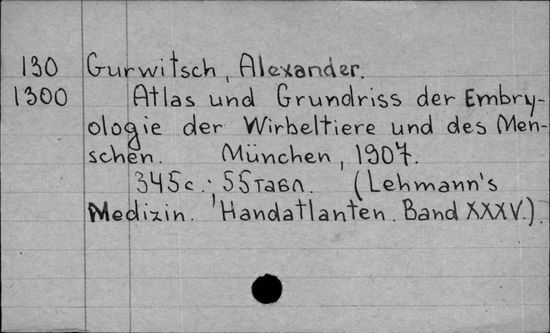 130 Gurwitsch, Alexander.
1300 Atlas und Grundriss der Embry-
ologie der Wirbeltiere und des Men-
schen. München, 1907.
345c.; 55 табл. (Lehmann's
Medizin. Handatlanten. Band XXXV.).